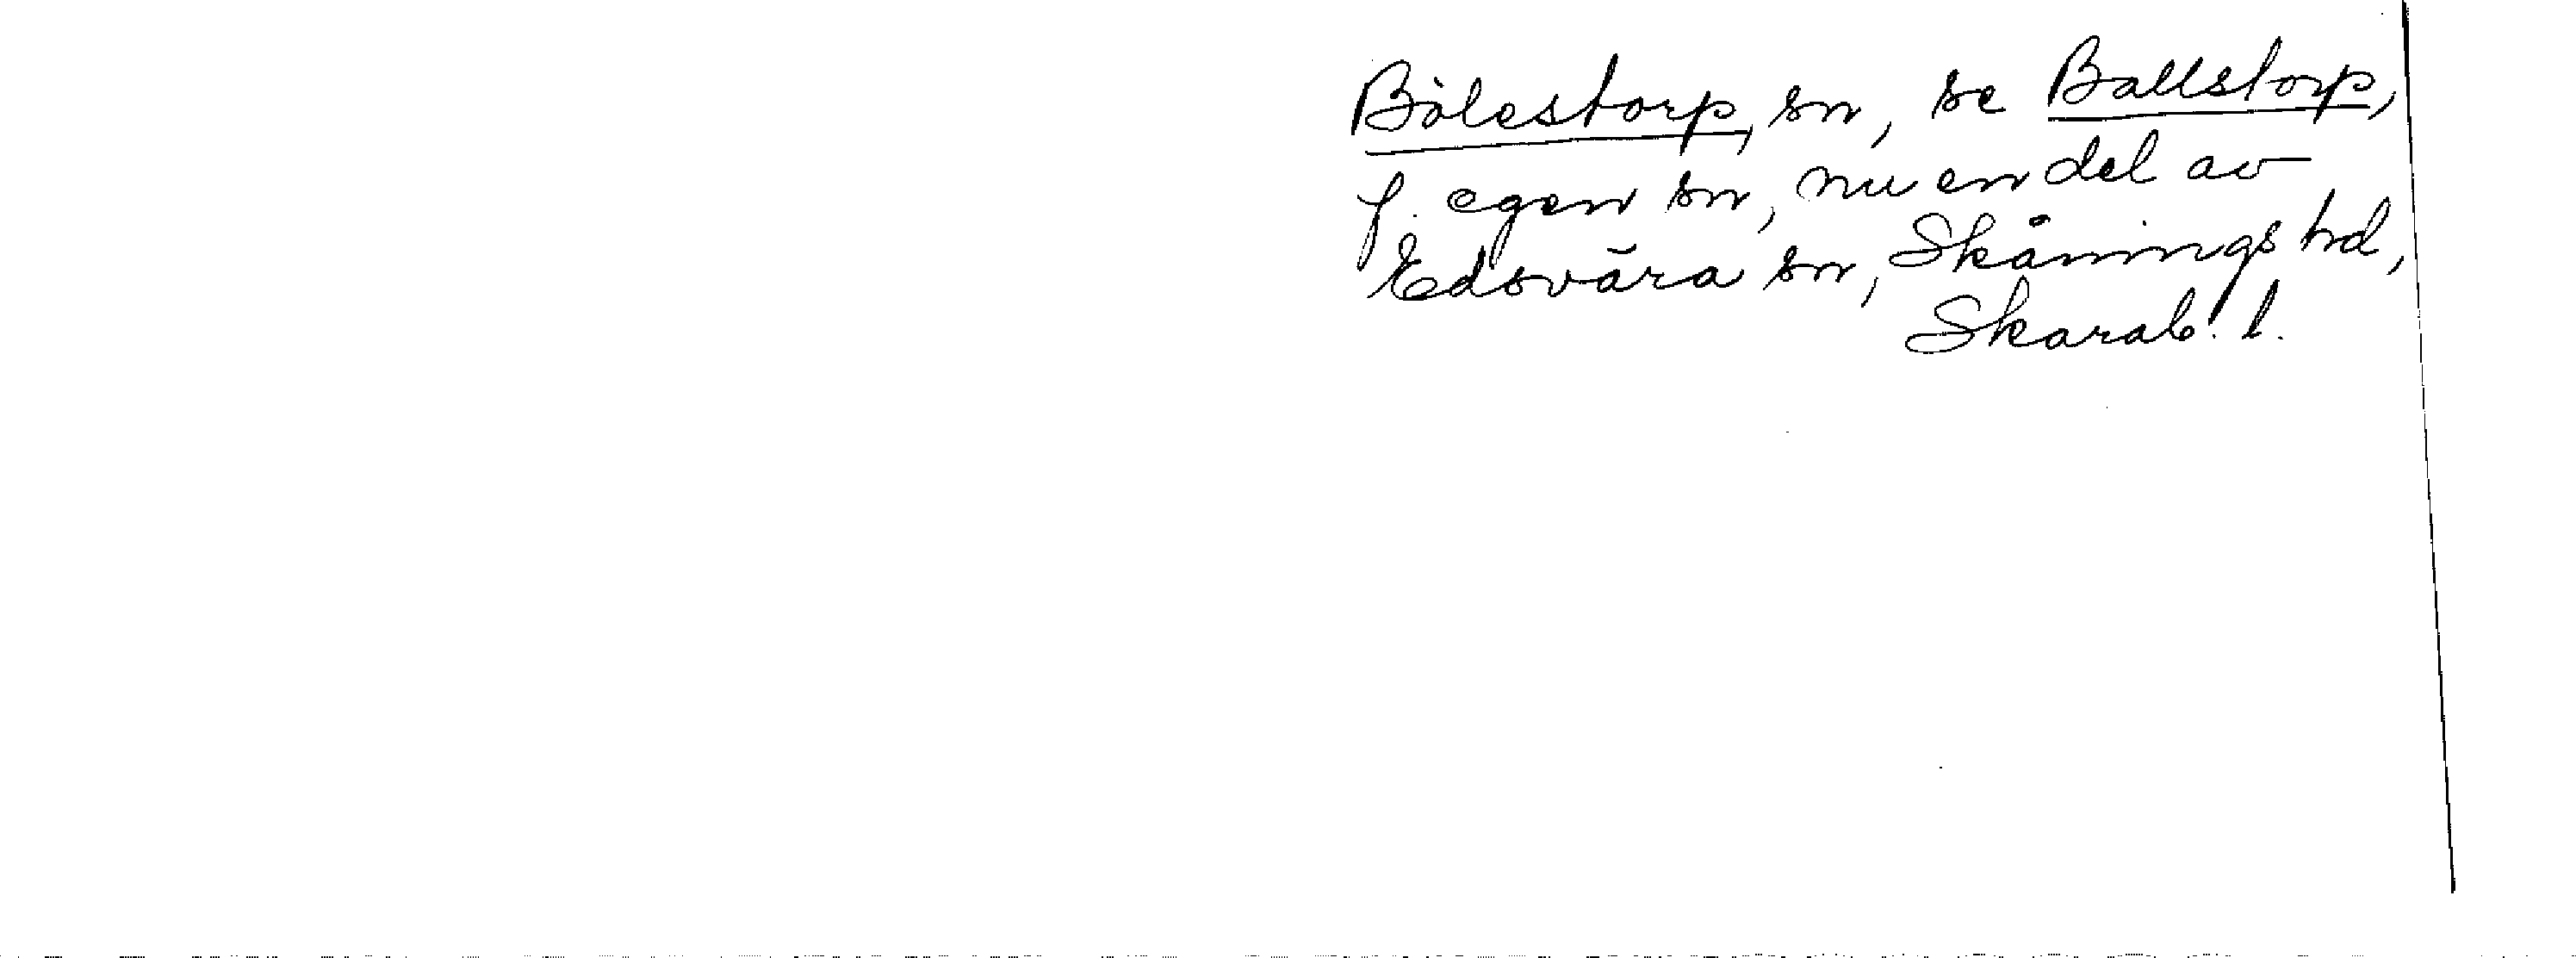 Bölestorp, sn, se Ballstorp,
f. egen sn, nu en del av
Edsvära sn, Skånings hd,
Skarab. l.